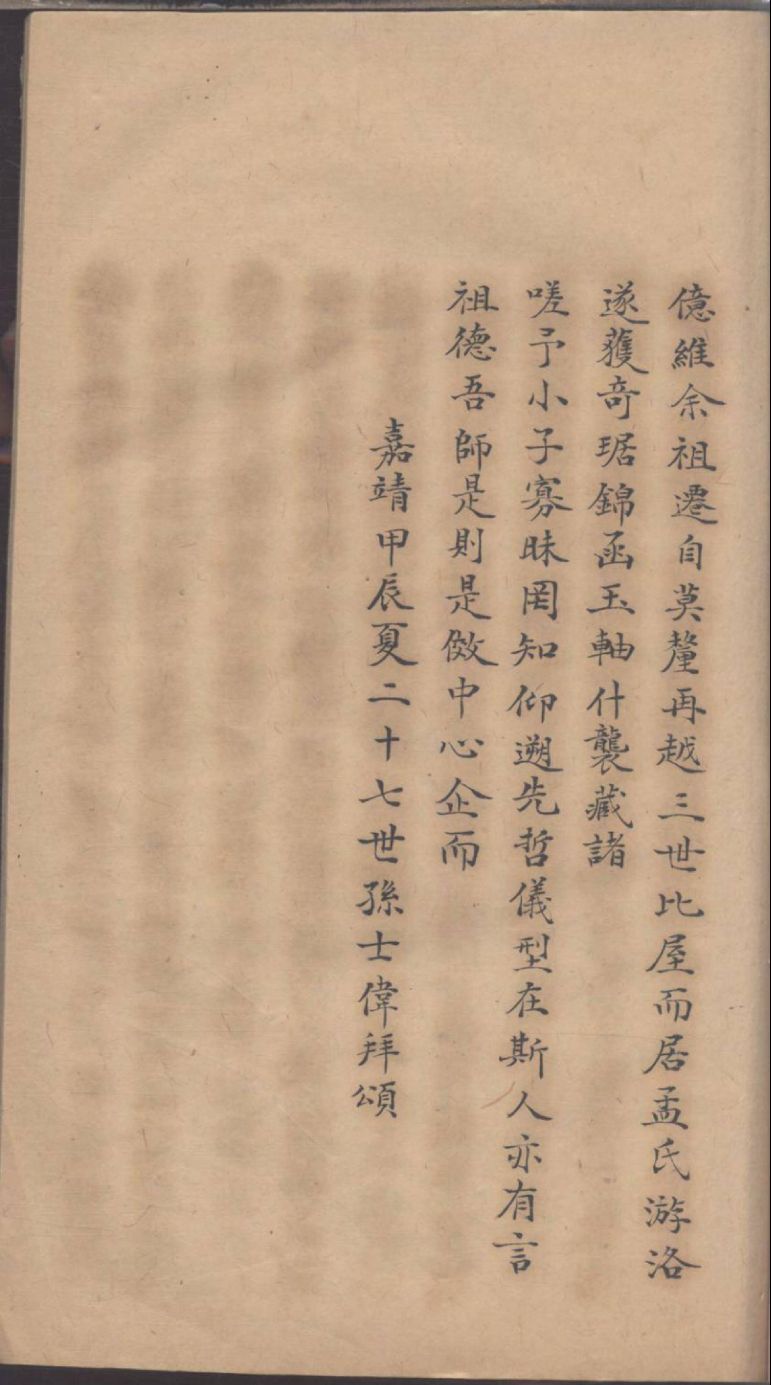 億維余祖遷自莫釐再越三世比屋而居孟氏游洛
遂獲奇琚錦函玉軸什襲藏諸
嗟予小子寡昧罔知仰遡先哲儀型在斯人亦有言
祖德吾師是則是傚中心企而
嘉靖甲辰夏二十七世孫士偉拜頌